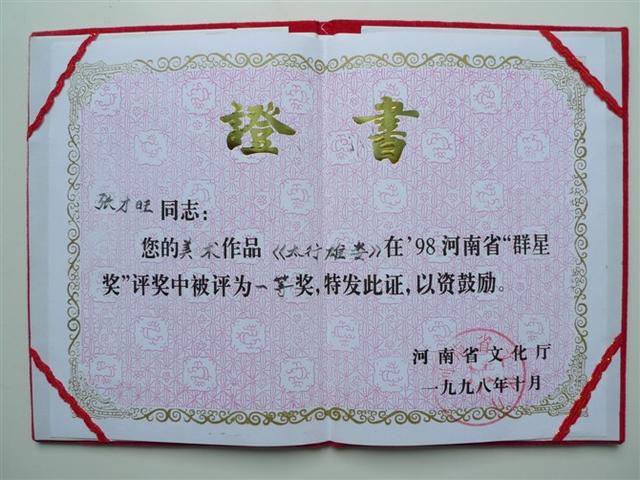 證書
张才旺同志:
您的美术作品《太行雄姿》在'98河南省“群星
奖”评奖中被评为一等奖,特发此证,以资鼓励。
河南省文化厅
一九九八年十月